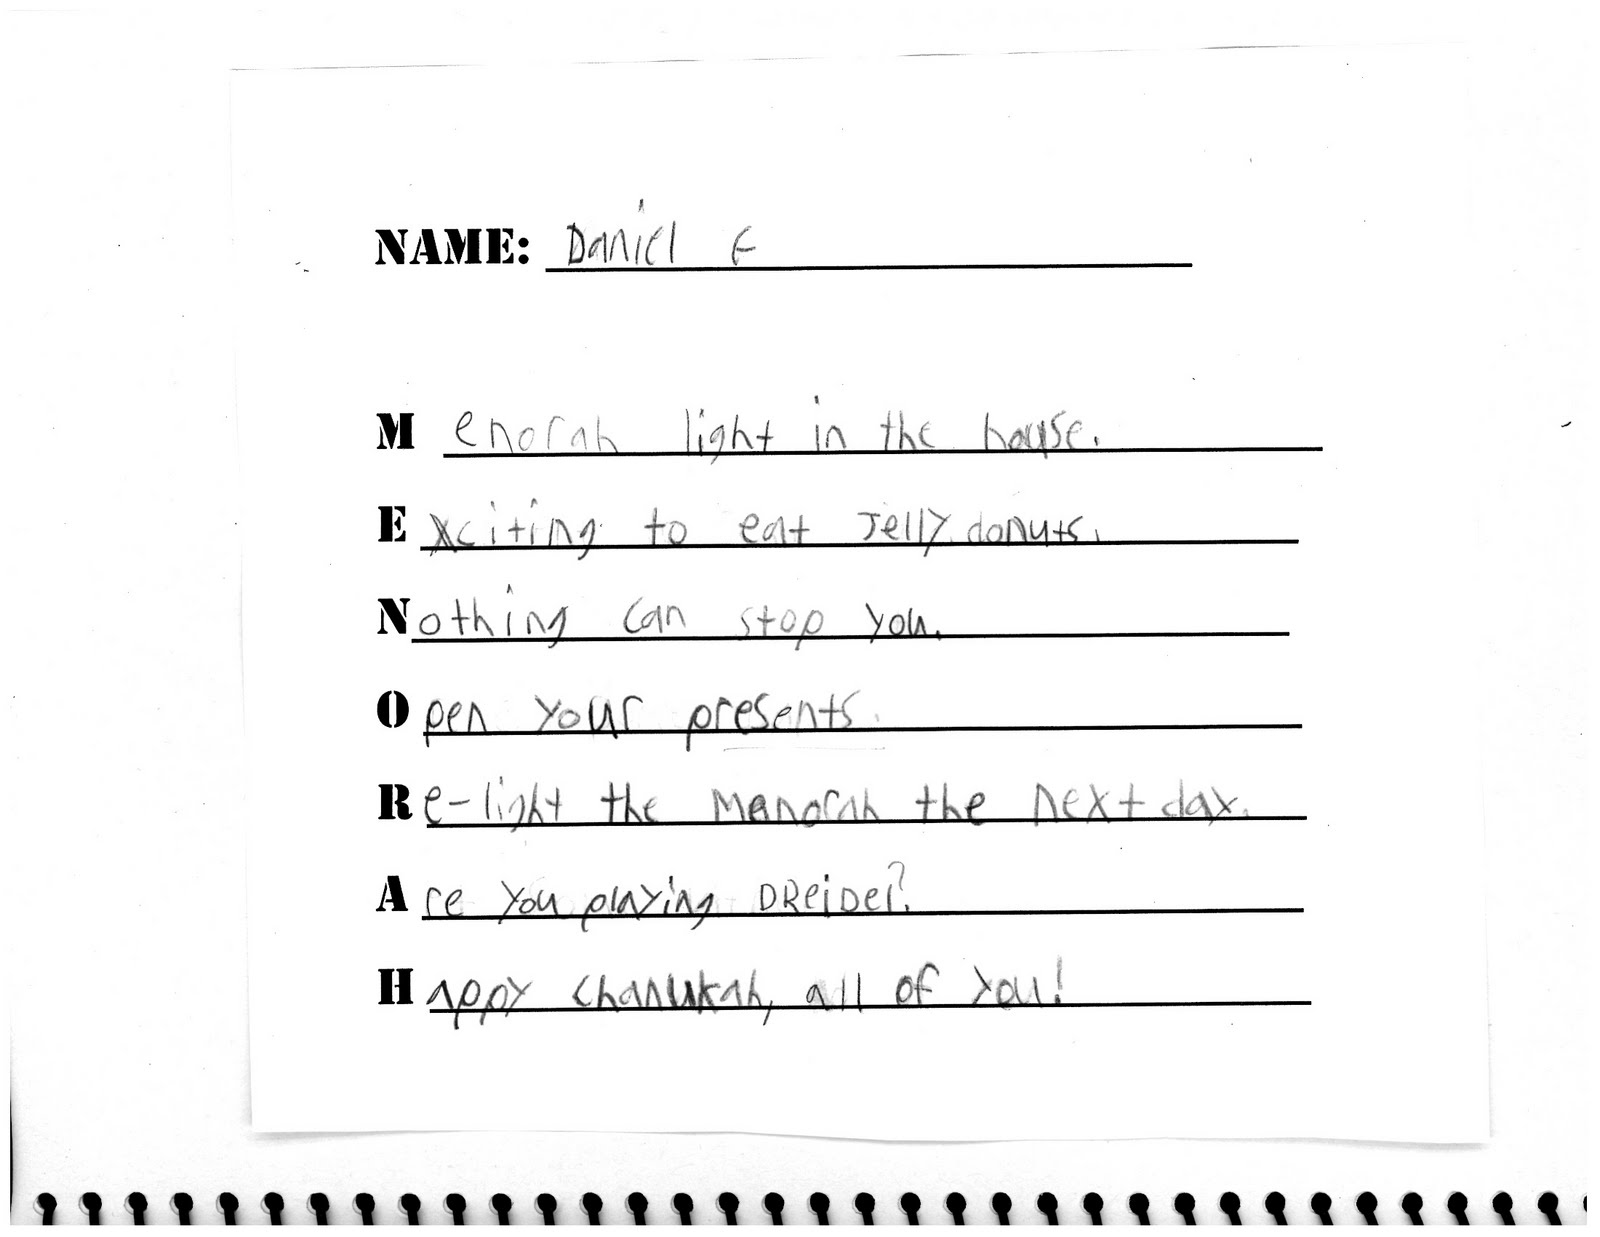 NAME: Daniel E
Menorah light in the house.
Exciting to eat Jelly donuts.
Nothing can stop you.
Open your presents.
Re-light the Menorah the next day.
Are you playing DReiDel?
Happy Chanukah, all of you!